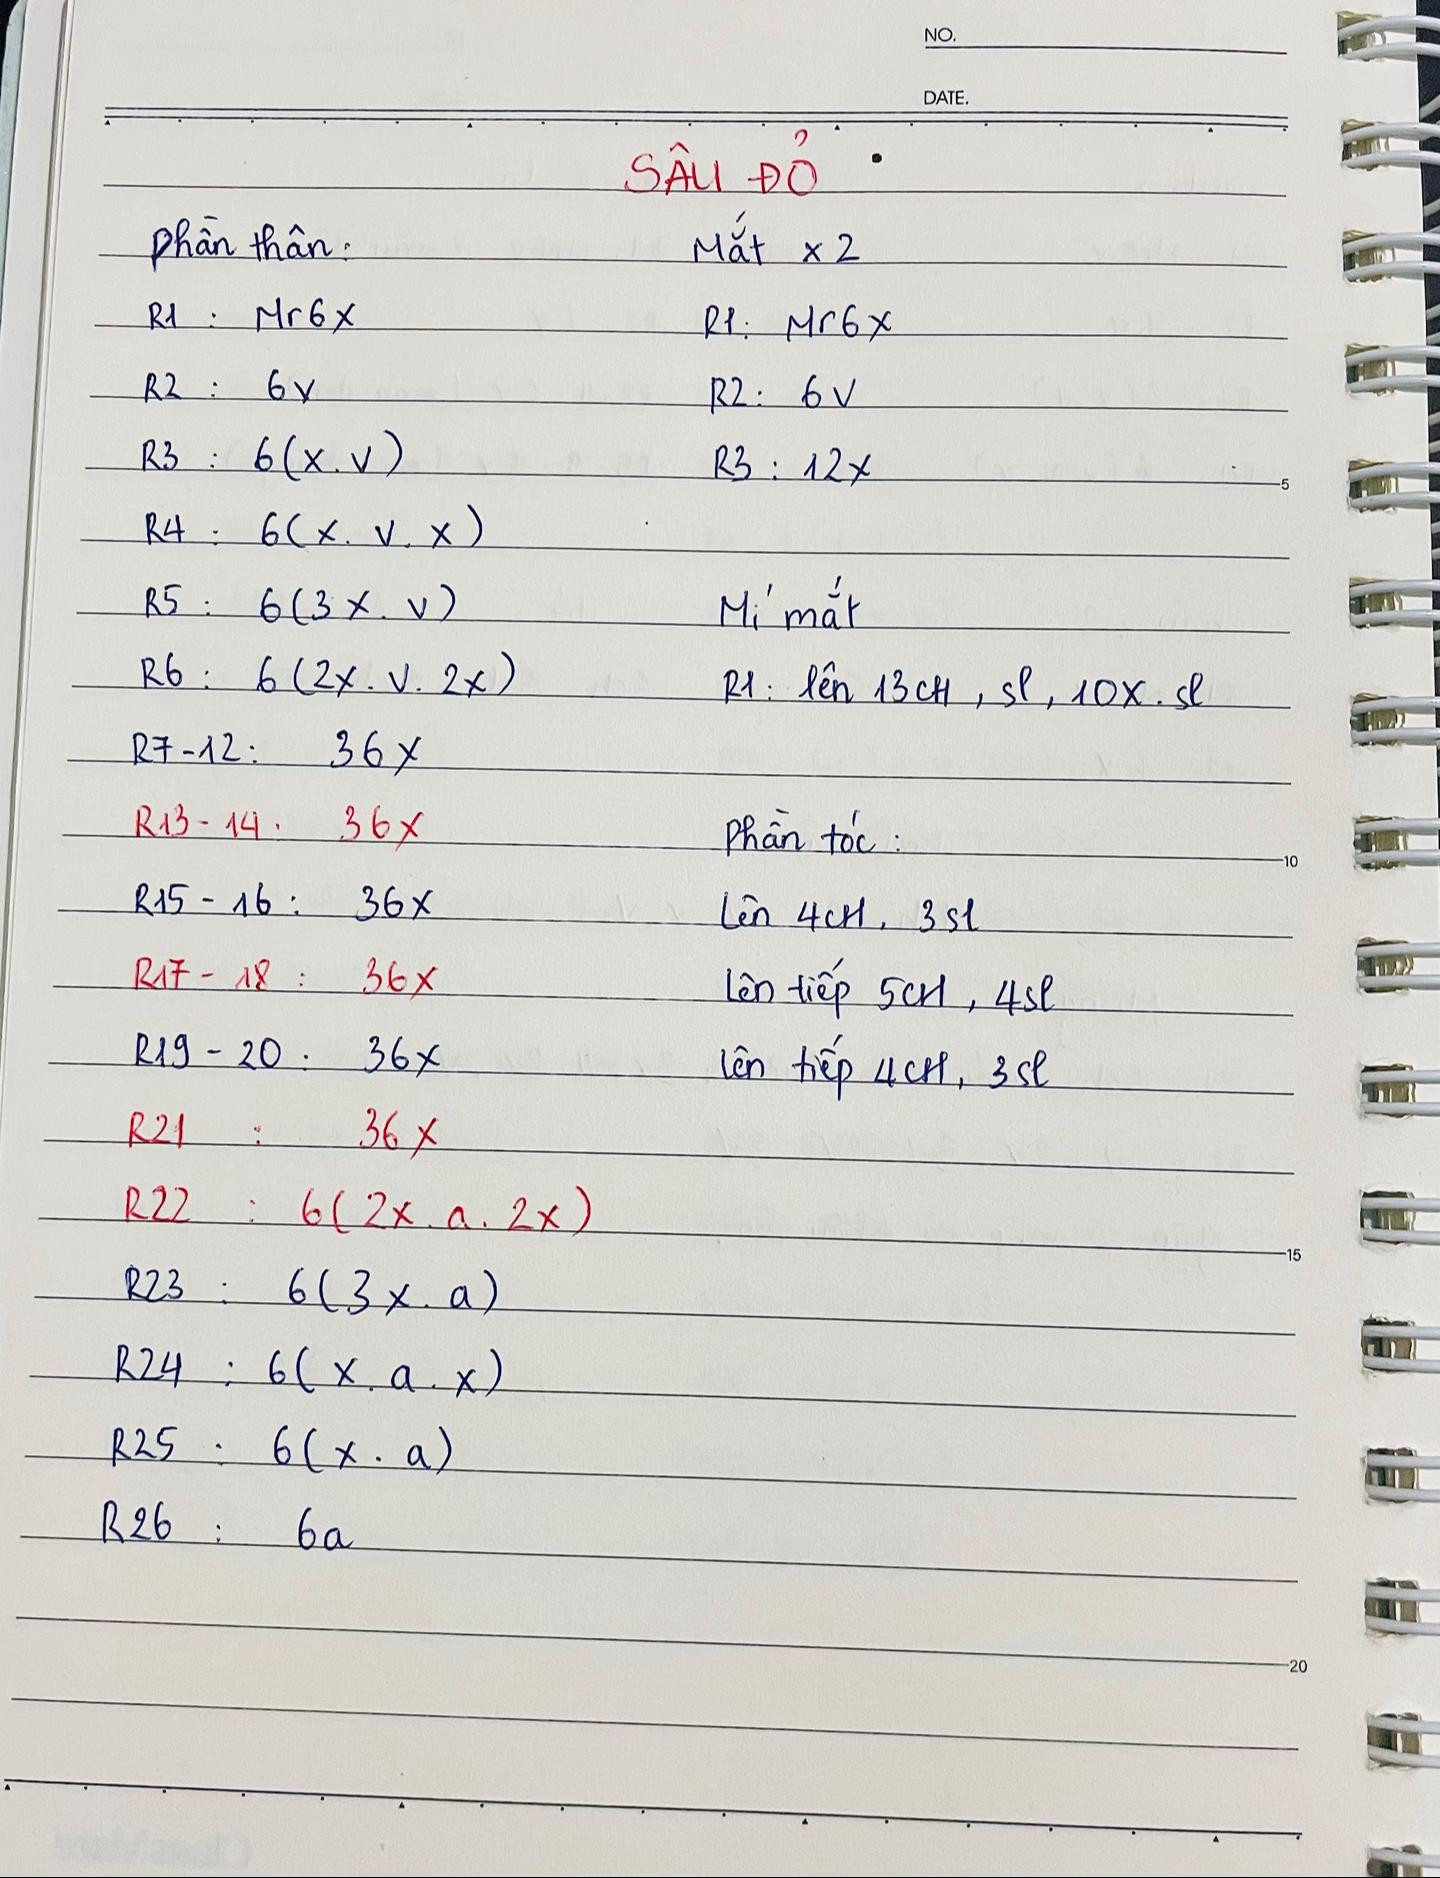 NO.
DATE.
SÂU ĐỎ
Phần thân:
R1 : Mr6x
R2 : 6v
R3 : 6(x.v)
R4 : 6(x.v.x)
R5 : 6(3x.v)
R6 : 6(2x.v.2x)
R7-12: 36x
R13-14. 36x
R15-16: 36x
R17-18 : 36x
R19-20 : 36x
R21 : 36x
R22 : 6(2x.a.2x)
R23 : 6(3x.a)
R24 : 6(x.a.x)
R25 : 6(x.a)
R26 : 6a
Mắt x2
R1: Mr6x
R2: 6v
R3 : 12x
Mí mắt
R1: lên 13CH, sl, 10x.sl
Phần tóc:
Lên 4CH, 3sl
Lên tiếp 5CH, 4sl
lên tiếp 4CH, 3sl
5
10
15
20